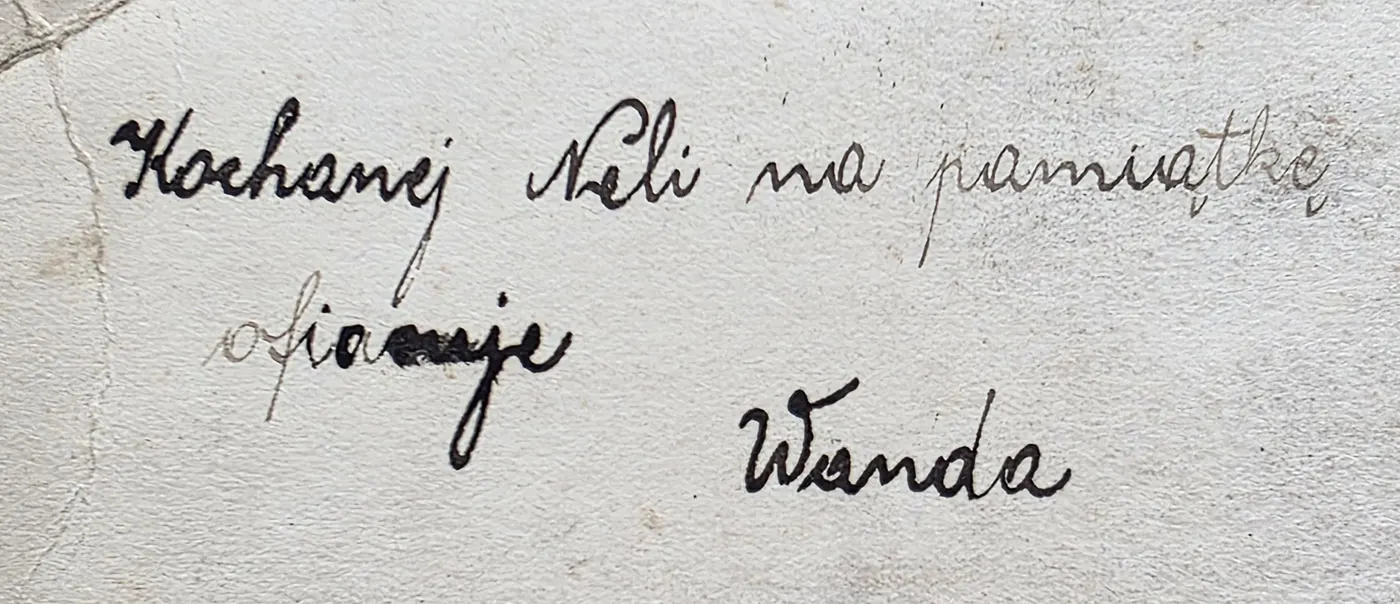 Kochanej Neli na pamiątkę
ofiaruje
Wanda